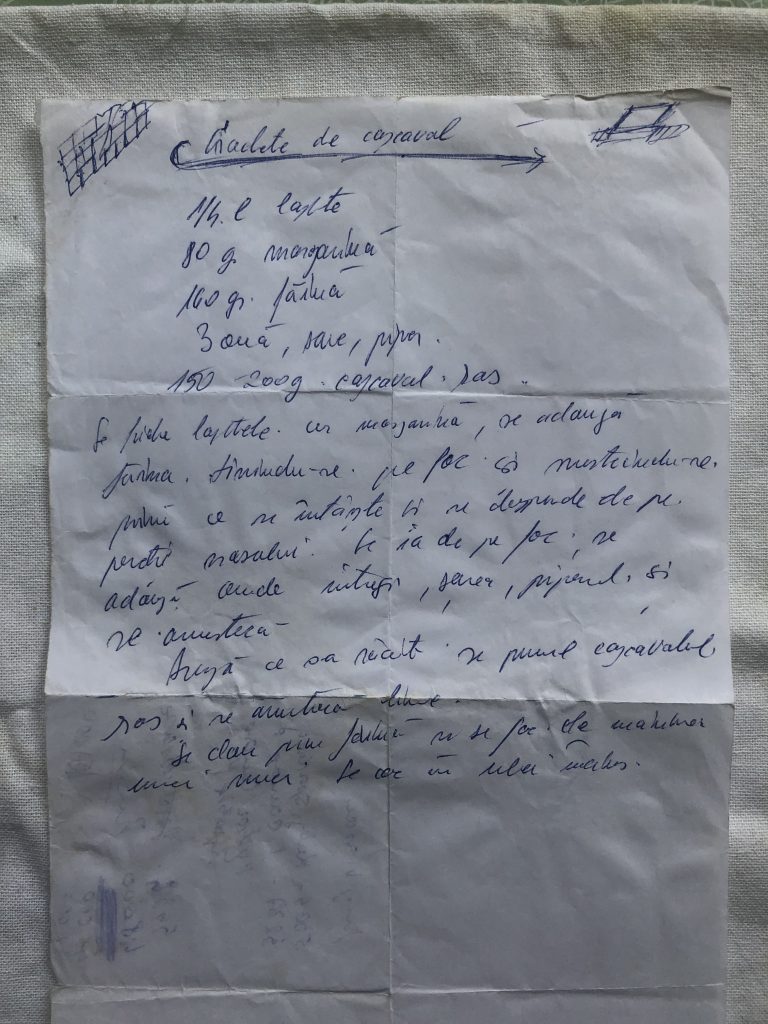 de cașcaval
1/4. l lapte
80 g. margarină
160 gr. făină
3 ouă, sare, piper.
150 - 200g. cașcaval. ras.
Se laptele. cu margarină, se adauga
făina. ținîndu-se. pe foc. și mestecîndu-se.
pînă ce se întărește și se desprinde de pe.
vasului. Se ia de pe foc, se
adaugă ouăle întregi, sarea, piperul. și
se. amestecă
După ce s-a răcit se pune cașcavalul,
ras și se amestecă bine.
Se dau prin făină și se fac. de mărimea
unei nuci. Se coc în ulei